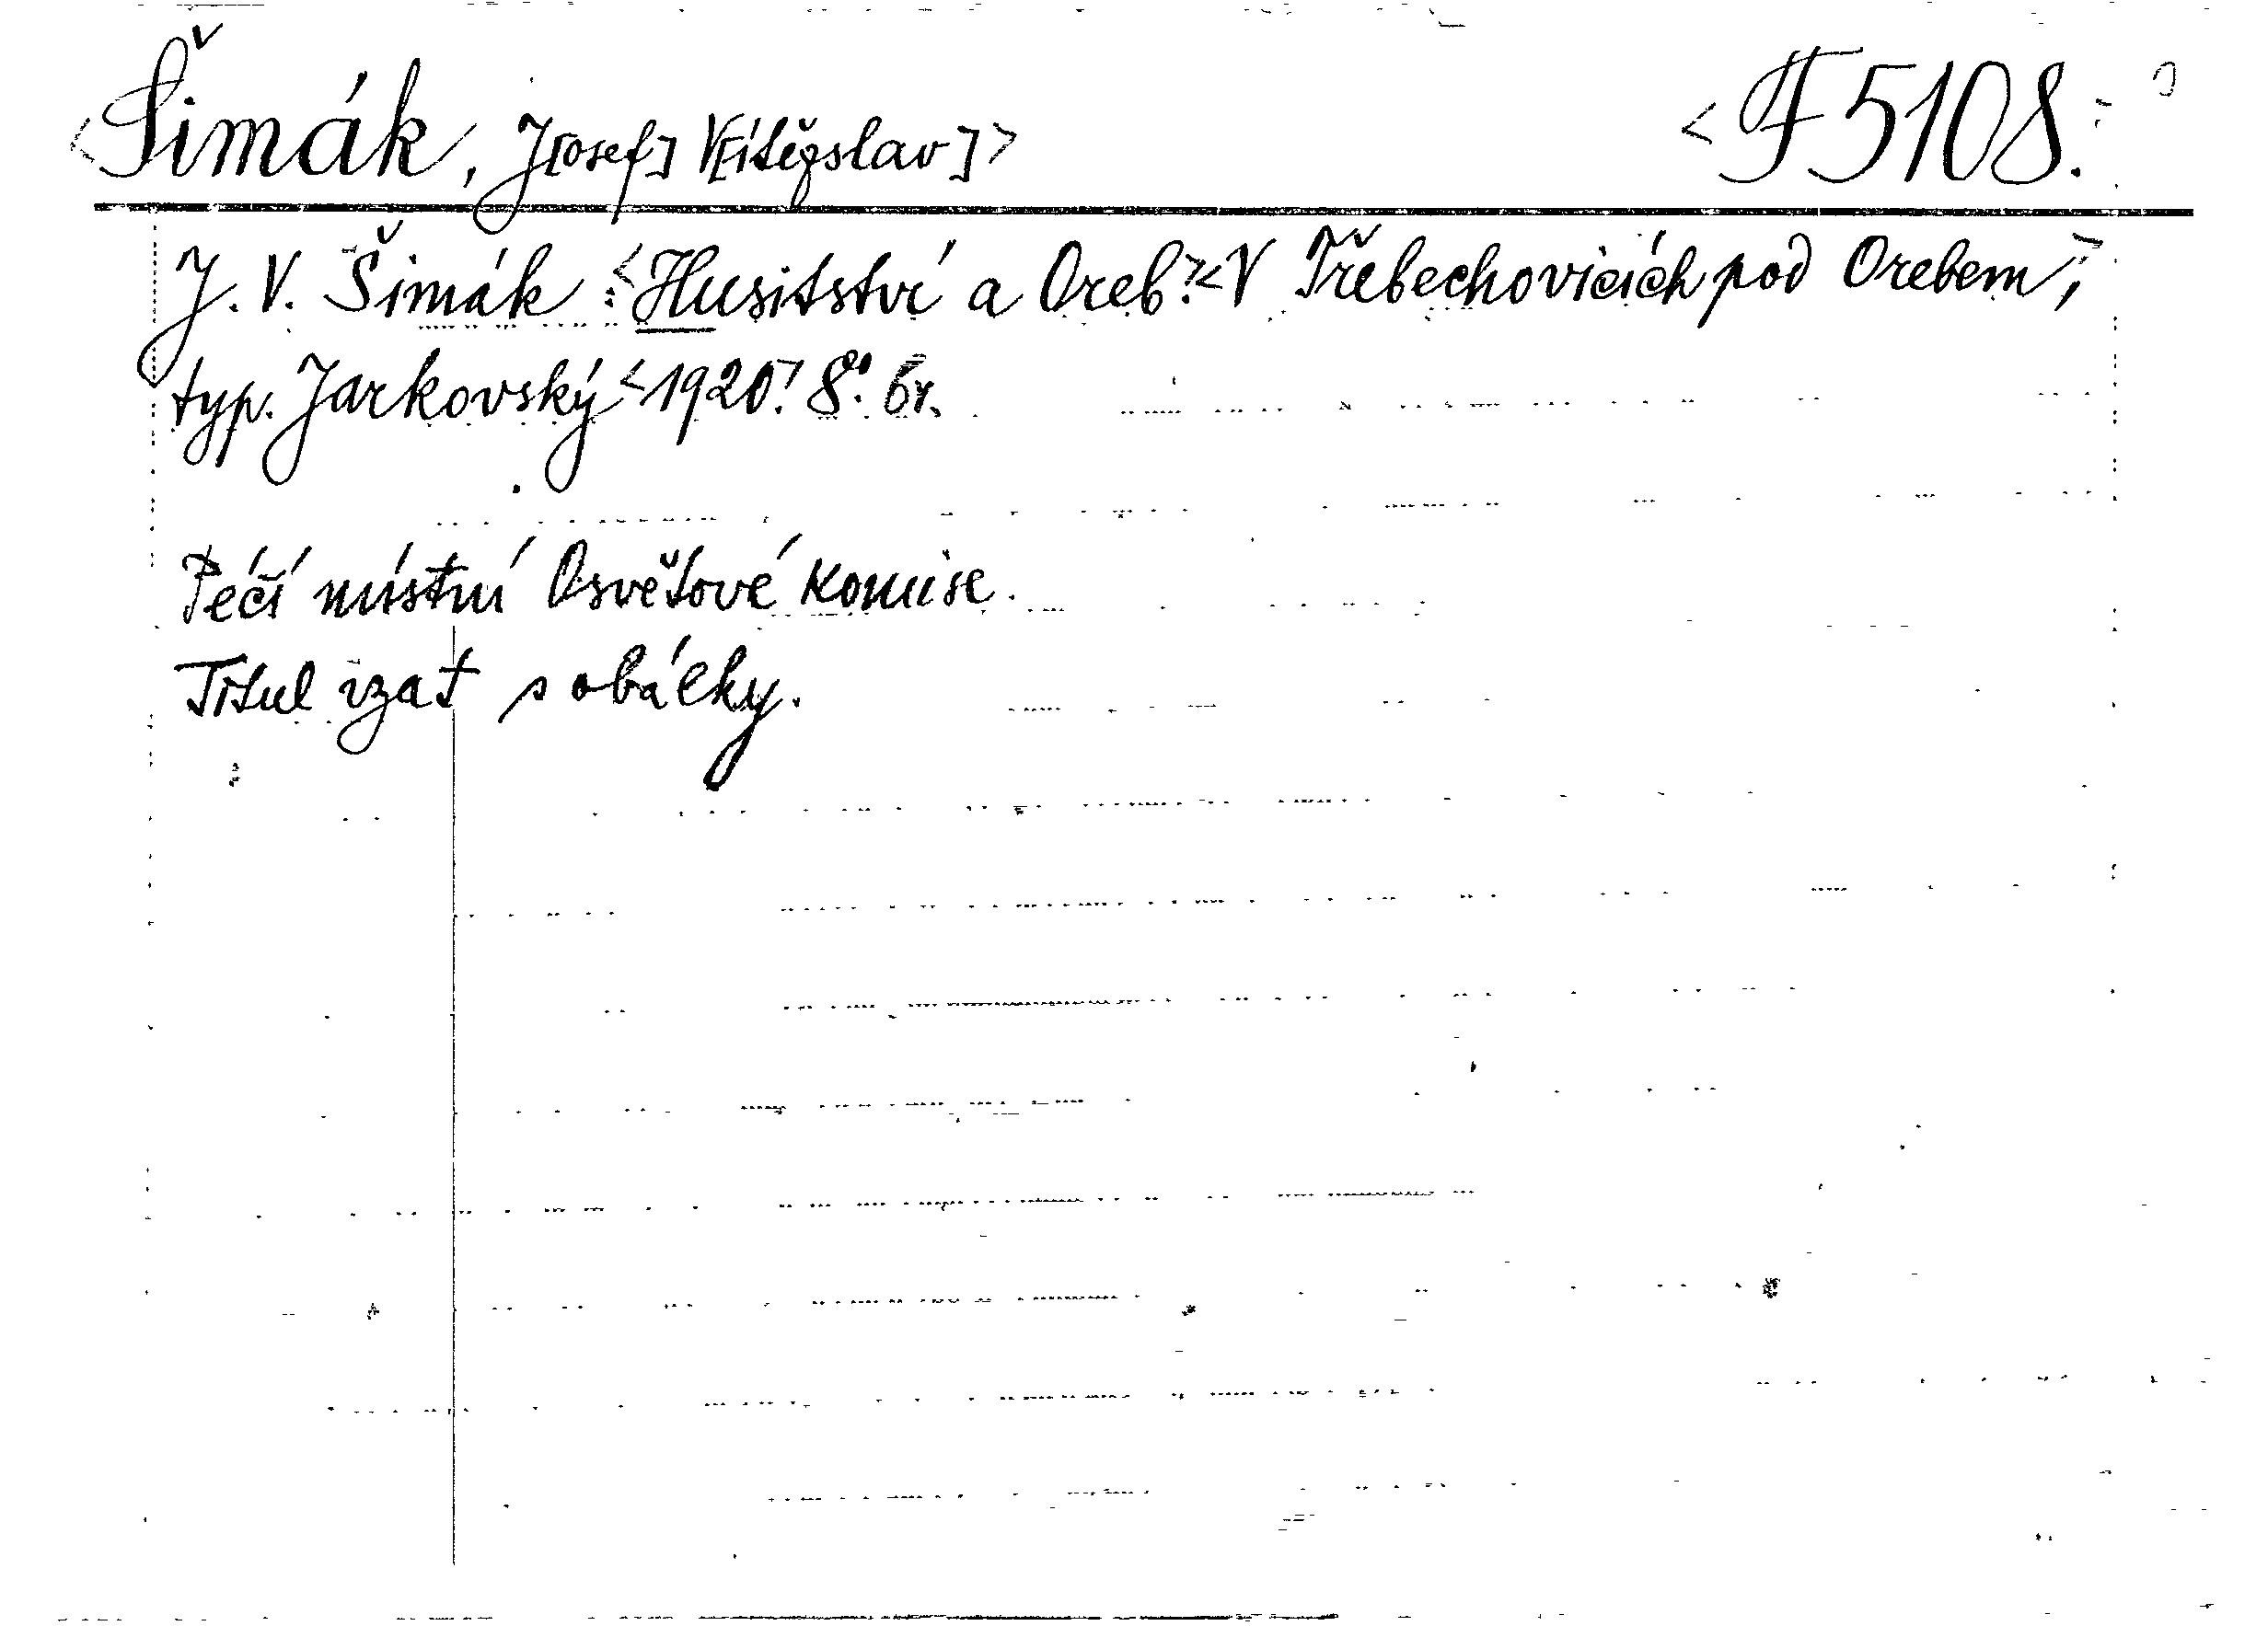 <Šimák, J[osef] V[ítězslav]> <F 5108.>
J. V. Šimák: <Husitství a Oreb.> <V Třebechovicích pod Orebem,>
typ. Jarkovský <1920.> 8°.
Péčí místní Osvětové komise.
Titul vzat s obálky.